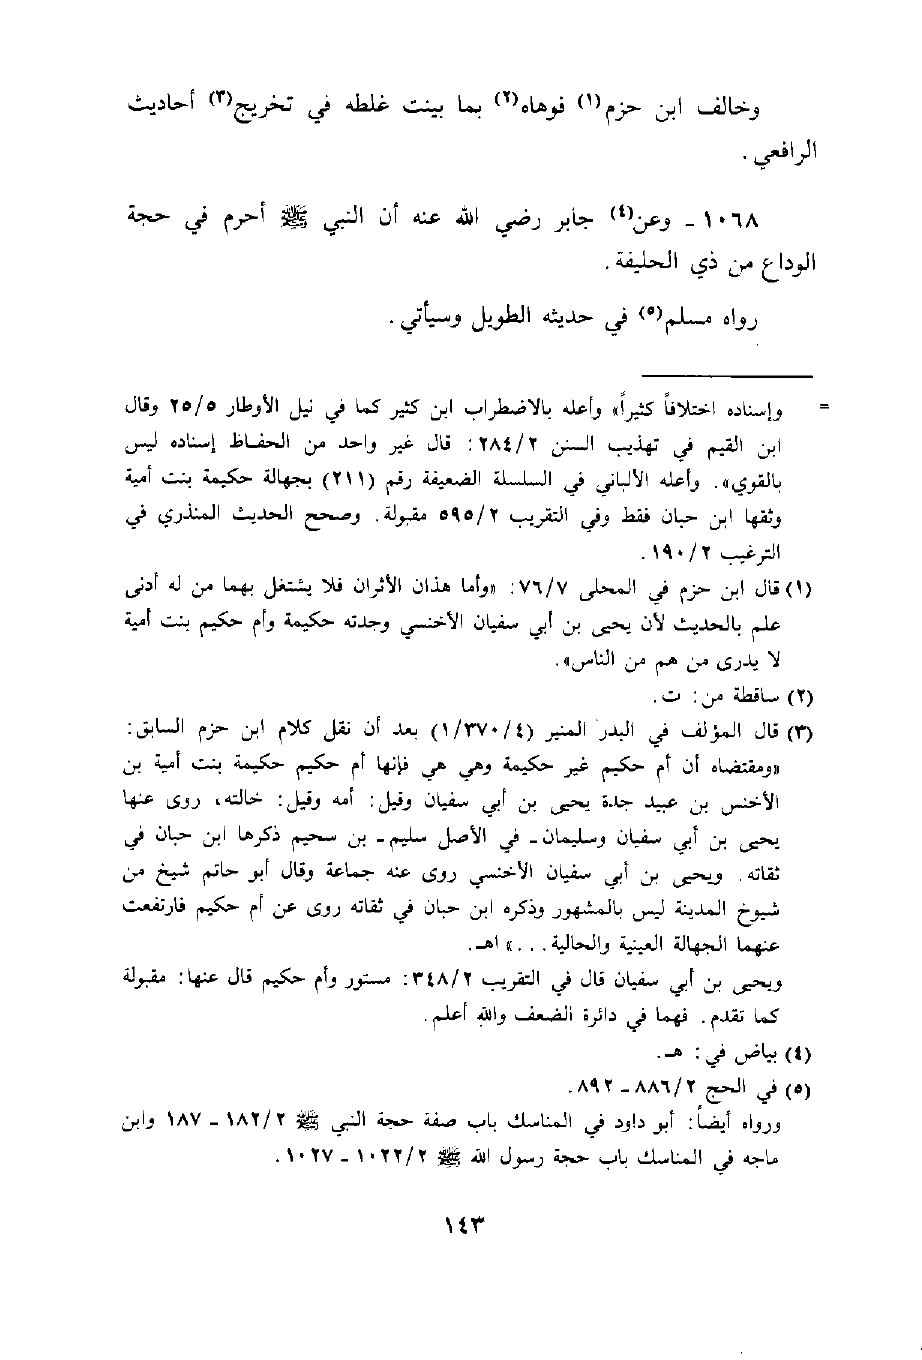 وخالف ابن حزم(١) فوهاه(٢) بما بينت غلطه في تخريج(٣) أحاديث
الرافعي .
١٠٦٨ ـ وعن(٤) جابر رضي الله عنه أن النبي ﷺ أحرم في حجة
الوداع من ذي الحليفة .
رواه مسلم(٥) في حديثه الطويل وسيأتي .
= وإسناده اختلافاً كثيراً» وأعله بالاضطراب ابن كثير كما في نيل الأوطار ٢٥/٥ وقال
ابن القيم في تهذيب السنن ٢٨٤/٢: قال غير واحد من الحفاظ إسناده ليس
بالقوي». وأعله الألباني في السلسلة الضعيفة رقم (٢١١) بجهالة حكيمة بنت أمية
وثقها ابن حبان فقط وفي التقريب ٥٩٥/٢ مقبولة. وصحح الحديث المنذري في
الترغيب ١٩٠/٢ .
(١) قال ابن حزم في المحلى ٧٦/٧: «وأما هذان الأثران فلا يشتغل بهما من له أدنى
علم بالحديث لأن يحيى بن أبي سفيان الأخنسي وجدته حكيمة وأم حكيم بنت أمية
لا يدرى من هم من الناس».
(٢) ساقطة من: ت.
(٣) قال المؤلف في البدر المنير (٤/ ١/٣٧٠) بعد أن نقل كلام ابن حزم السابق:
«ومقتضاه أن أم حكيم غير حكيمة وهي هي فإنها أم حكيم حكيمة بنت أمية بن
الأخنس بن عبيد جدة يحيى بن أبي سفيان وقيل: أمه وقيل: خالته، روى عنها
يحيى بن أبي سفيان وسليمان ـ في الأصل سليم ـ بن سحيم ذكرها ابن حبان في
ثقاته. ويحيى بن أبي سفيان الأخنسي روى عنه جماعة وقال أبو حاتم شيخ من
شيوخ المدينة ليس بالمشهور وذكره ابن حبان في ثقاته روى عن أم حكيم فارتفعت
عنهما الجهالة العينية والحالية . . .» اهـ.
ويحيى بن أبي سفيان قال في التقريب ٣٤٨/٢: مستور وأم حكيم قال عنها: مقبولة
كما تقدم. فهما في دائرة الضعف والله أعلم.
(٤) بياض في: هـ.
(٥) في الحج ٨٨٦/٢ ـ ٨٩٢.
ورواه أيضاً: أبو داود في المناسك باب صفة حجة النبي ﷺ ١٨٢/٢ ـ ١٨٧ وابن
ماجه في المناسك باب حجة رسول الله ﷺ ١٠٢٢/٢ ـ ١٠٢٧.
١٤٣